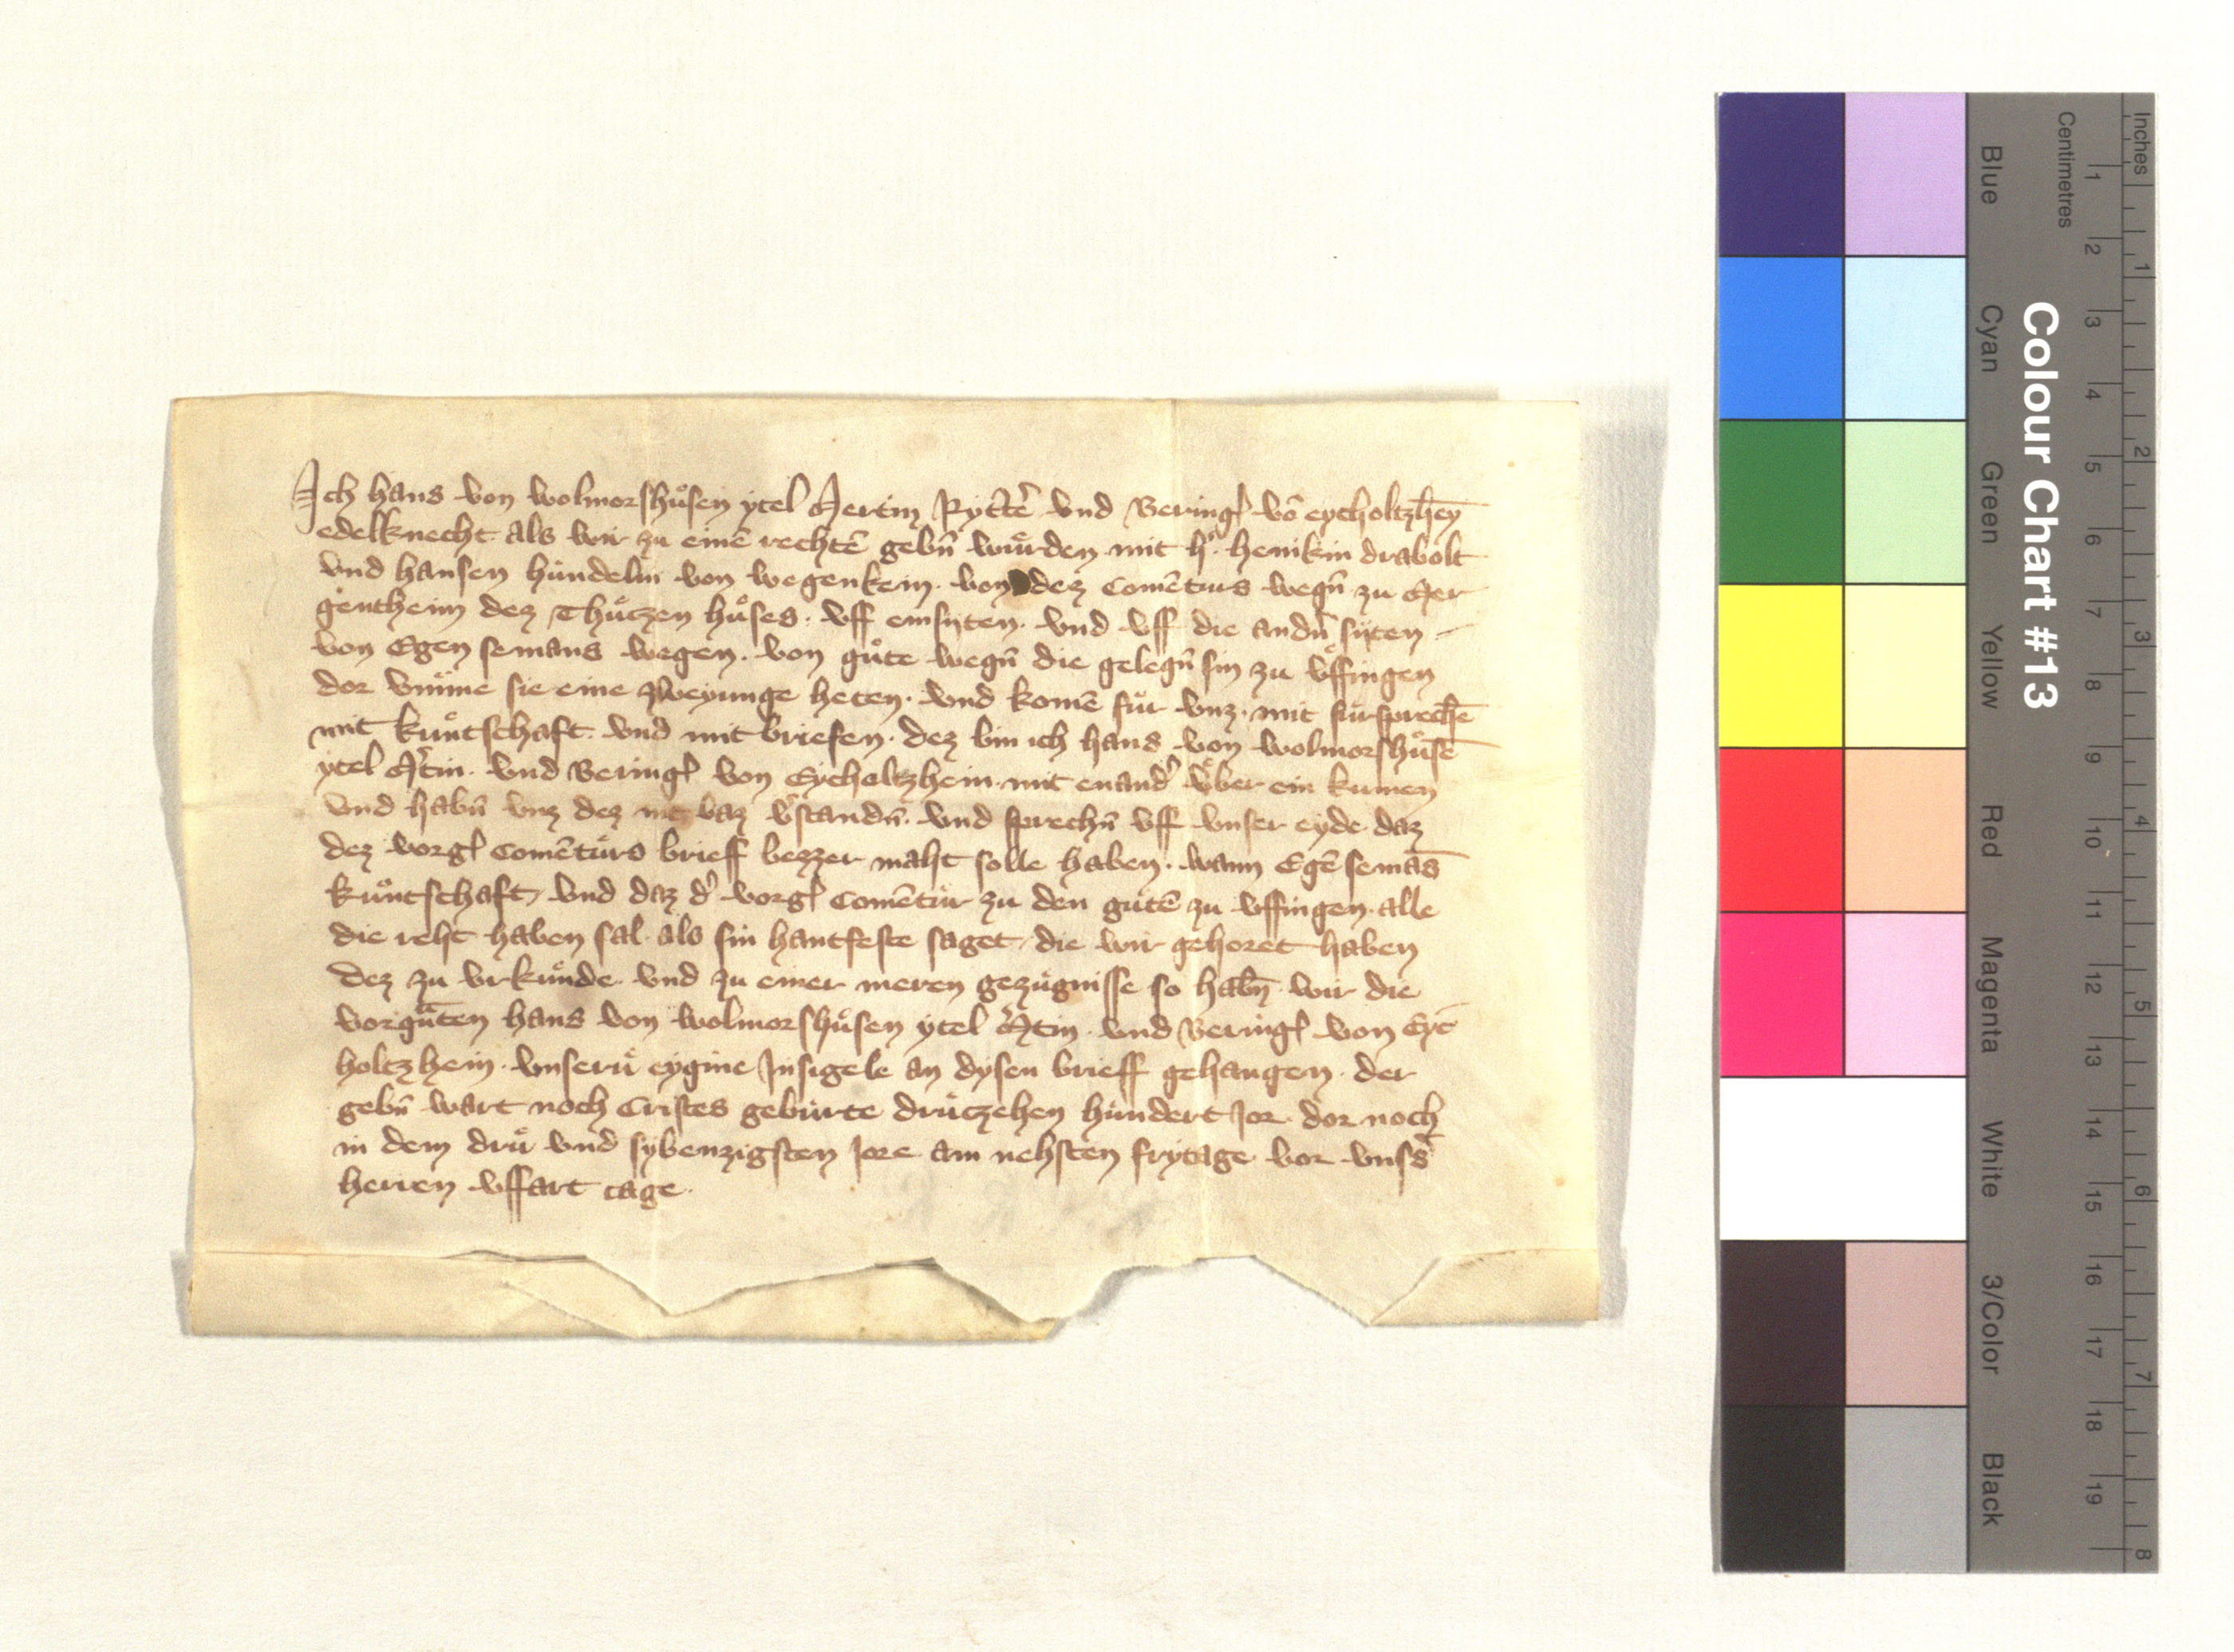 Ich hans von wolmorshuͦsen ytel Mertin Rytt̄e vnd Bering̛ vō eycholtzhēy
edelknecht als wir zu einē rechtē gebn̄ wuͤrden mit h̛ henikin drabolt
vnd hansen hundelin von wegenkein · von dez Comēturs wegn̄ zu Mer
gentheim dez Thuͤczen huͦses · vff einsyten · vnd vff die andn̄ syten
von Egen semans wegen · von guͦte wegn̄ die gelegn̄ sin zu vͦffingen
dor vmme sie eine zweyunge heten · vnd komē fuͤr vnz · mit fuͤrsprechē
mit kuͦntschaft · vnd mit briefen · dez bin ich hans von wolmorshuͦsē
ytel M̛tin · vnd Bering̛ von Eycholtzhein · mit enand̛ vͤber ein kumen
vnd habn̄ vnz dez nit baz v̛standn̄ · vnd sprechn̄ vff vnser eyde daz
dez vorg̛ Comētuͤrs brieff bezzer maht solle haben · wann Egē semās
kuͦntschaft / vnd daz d̛ vorg̛ Comētur zu den gutē zu vffingen · alle
die reht haben sal · als sin hantfeste saget / die wir gehoret haben
dez zu vrkuͤnde · vnd zu einer meren gezuͤgnisse so habn̄ · wir die
vorgn̄aten hans von wolmorshuͦsen ytel M̛tin · vnd Bering̛ von Eyc
holtzhein · vnseruͤ eygine Insigele an dysen brieff gehangen · der
gebn̄ wart noch Cristes geburte druͤczehen hundert Jor · dor noch
in dem druͤ vnd sybenzigsten Jore am nehsten frytage vor vnss̛
herren vffart tage ·
Colour Chart #13
Blue Cyan Green Yellow Red Magenta White 3/Color Black
Centimetres 1 2 3 4 5 6 7 8 9 10 11 12 13 14 15 16 17 18 19
Inches 1 2 3 4 5 6 7 8